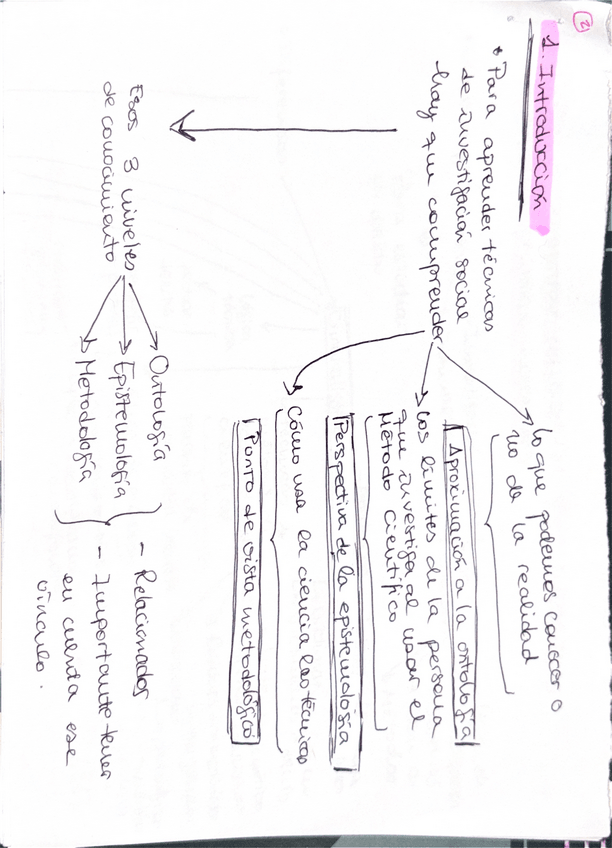 2
1. Introducción
* Para aprender técnicas
de investigación social
hay que comprender
Lo que podemos conocer o
no de la realidad
Aproximación a la ontología
Los límites de la persona
que investiga al usar el
Método científico
Perspectiva de la epistemología
Cómo usa la ciencia las técnicas
Punto de vista metodológico
Esos 3 niveles
de conocimiento
Ontología
Epistemología
Metodología
- Relacionados
- Importante tener
en cuenta ese
vínculo.